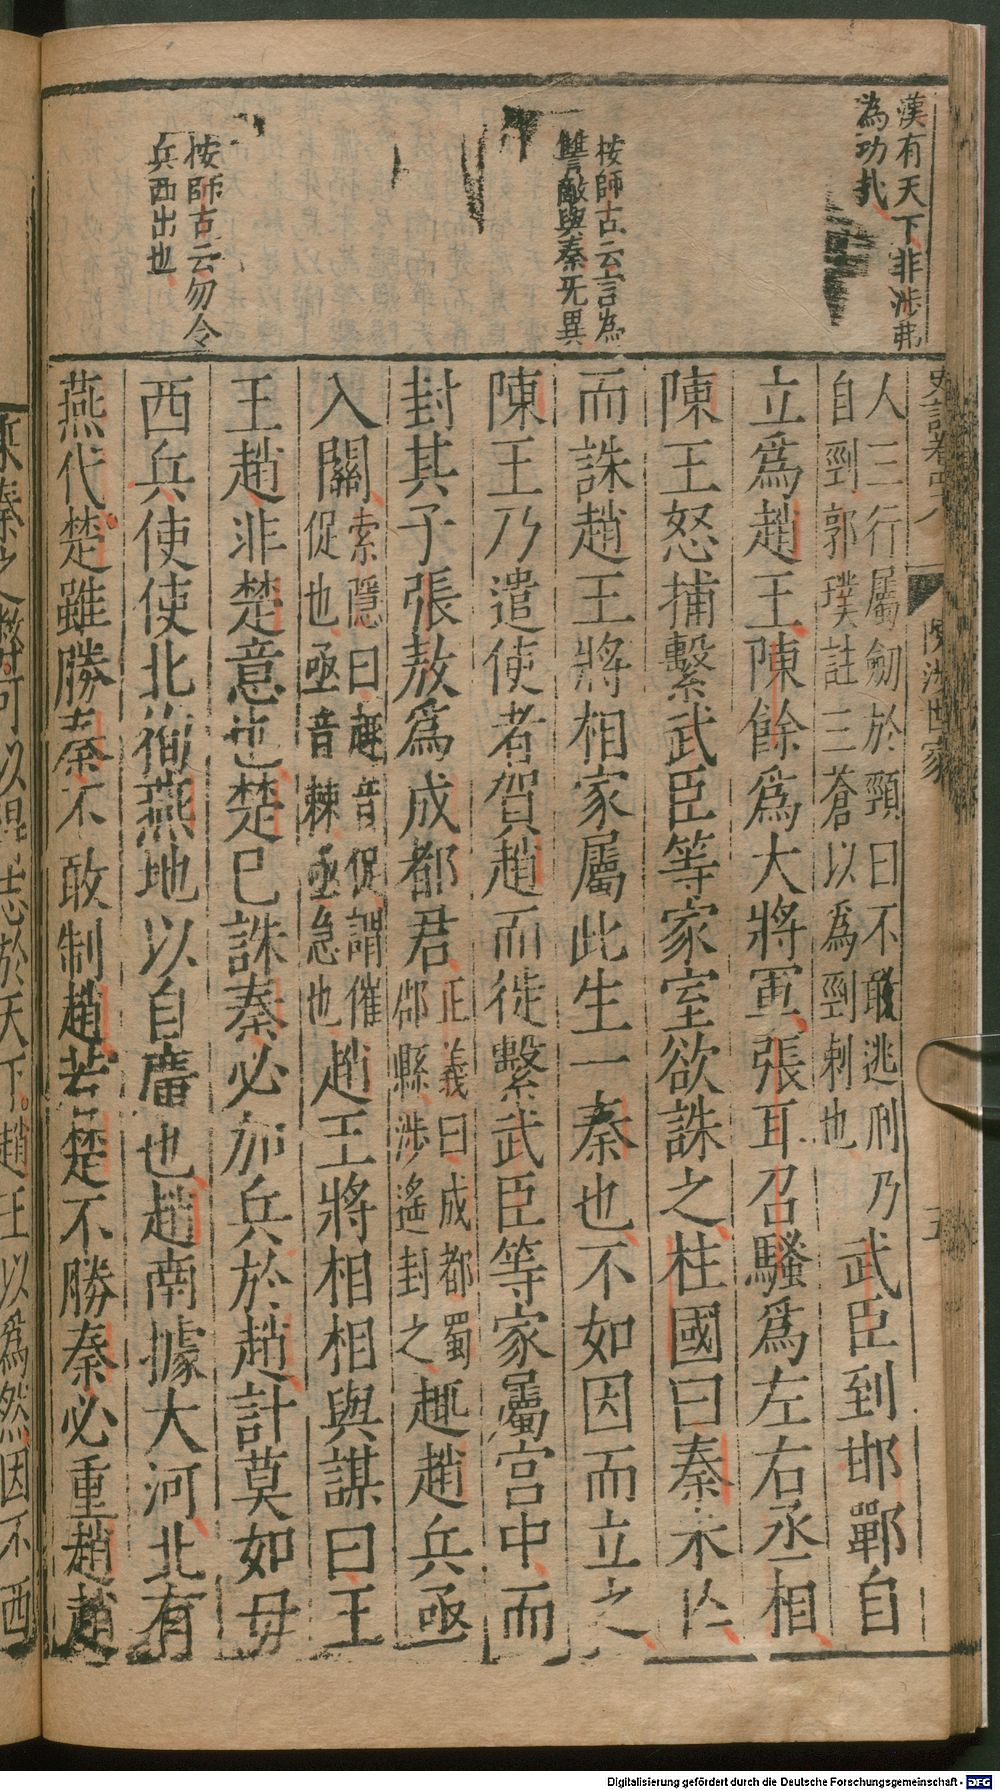 漢有天下非涉弗
為功哉
按師古云言為
讐敵與秦无異
按師古云勿令
兵西出也
史記卷四八
陳涉世家
五
人三行屬劒於頸曰不敢逃刑乃
自剄郭璞註三蒼以爲剄刺也
武臣到邯鄲自
立爲趙王陳餘爲大將軍張耳召騷爲左右丞相
陳王怒捕繫武臣等家室欲誅之柱國曰秦未亡
而誅趙王將相家屬此生一秦也不如因而立之
陳王乃遣使者賀趙而徙繫武臣等家屬宫中而
封其子張敖爲成都君
正義曰成都蜀
郡縣涉遙封之
趣趙兵亟
入關
索隱曰趣音促謂催
促也亟音棘亟急也
趙王將相相與謀曰王
王趙非楚意也楚已誅秦必加兵於趙計莫如毋
西兵使使北徇燕地以自廣也趙南據大河北有
燕代楚雖勝秦不敢制趙若楚不勝秦必重趙趙
以得志於天下趙王以爲然因不西
Digitalisierung gefördert durch die Deutsche Forschungsgemeinschaft - DFG